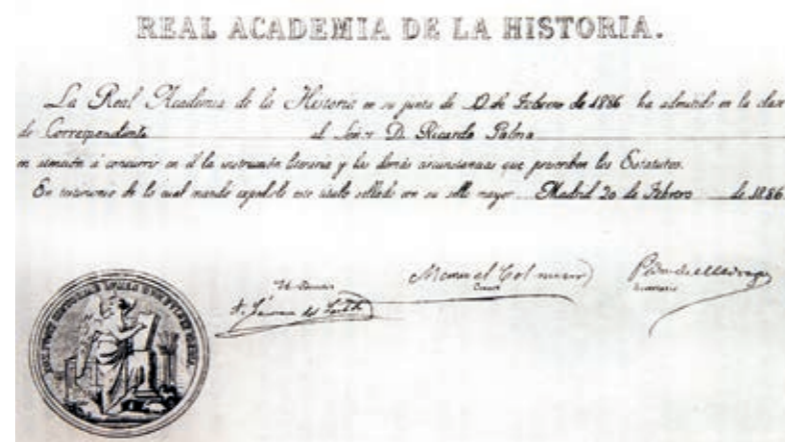 REAL ACADEMIA DE LA HISTORIA.
La Real Academia de la Historia en su junta de 12 de Febrero de 1886 ha admitido en la clase
de Correspondiente al Señor D. Ricardo Palma
en atención á concurrir en él la instrucción literaria y las demás circunstancias que prescriben los Estatutos.
En testimonio de lo cual mandó expedirle este título sellado con su sello mayor. Madrid 20 de Febrero de 1886
Manuel Colmeiro
Pedro de Madrazo
Censor